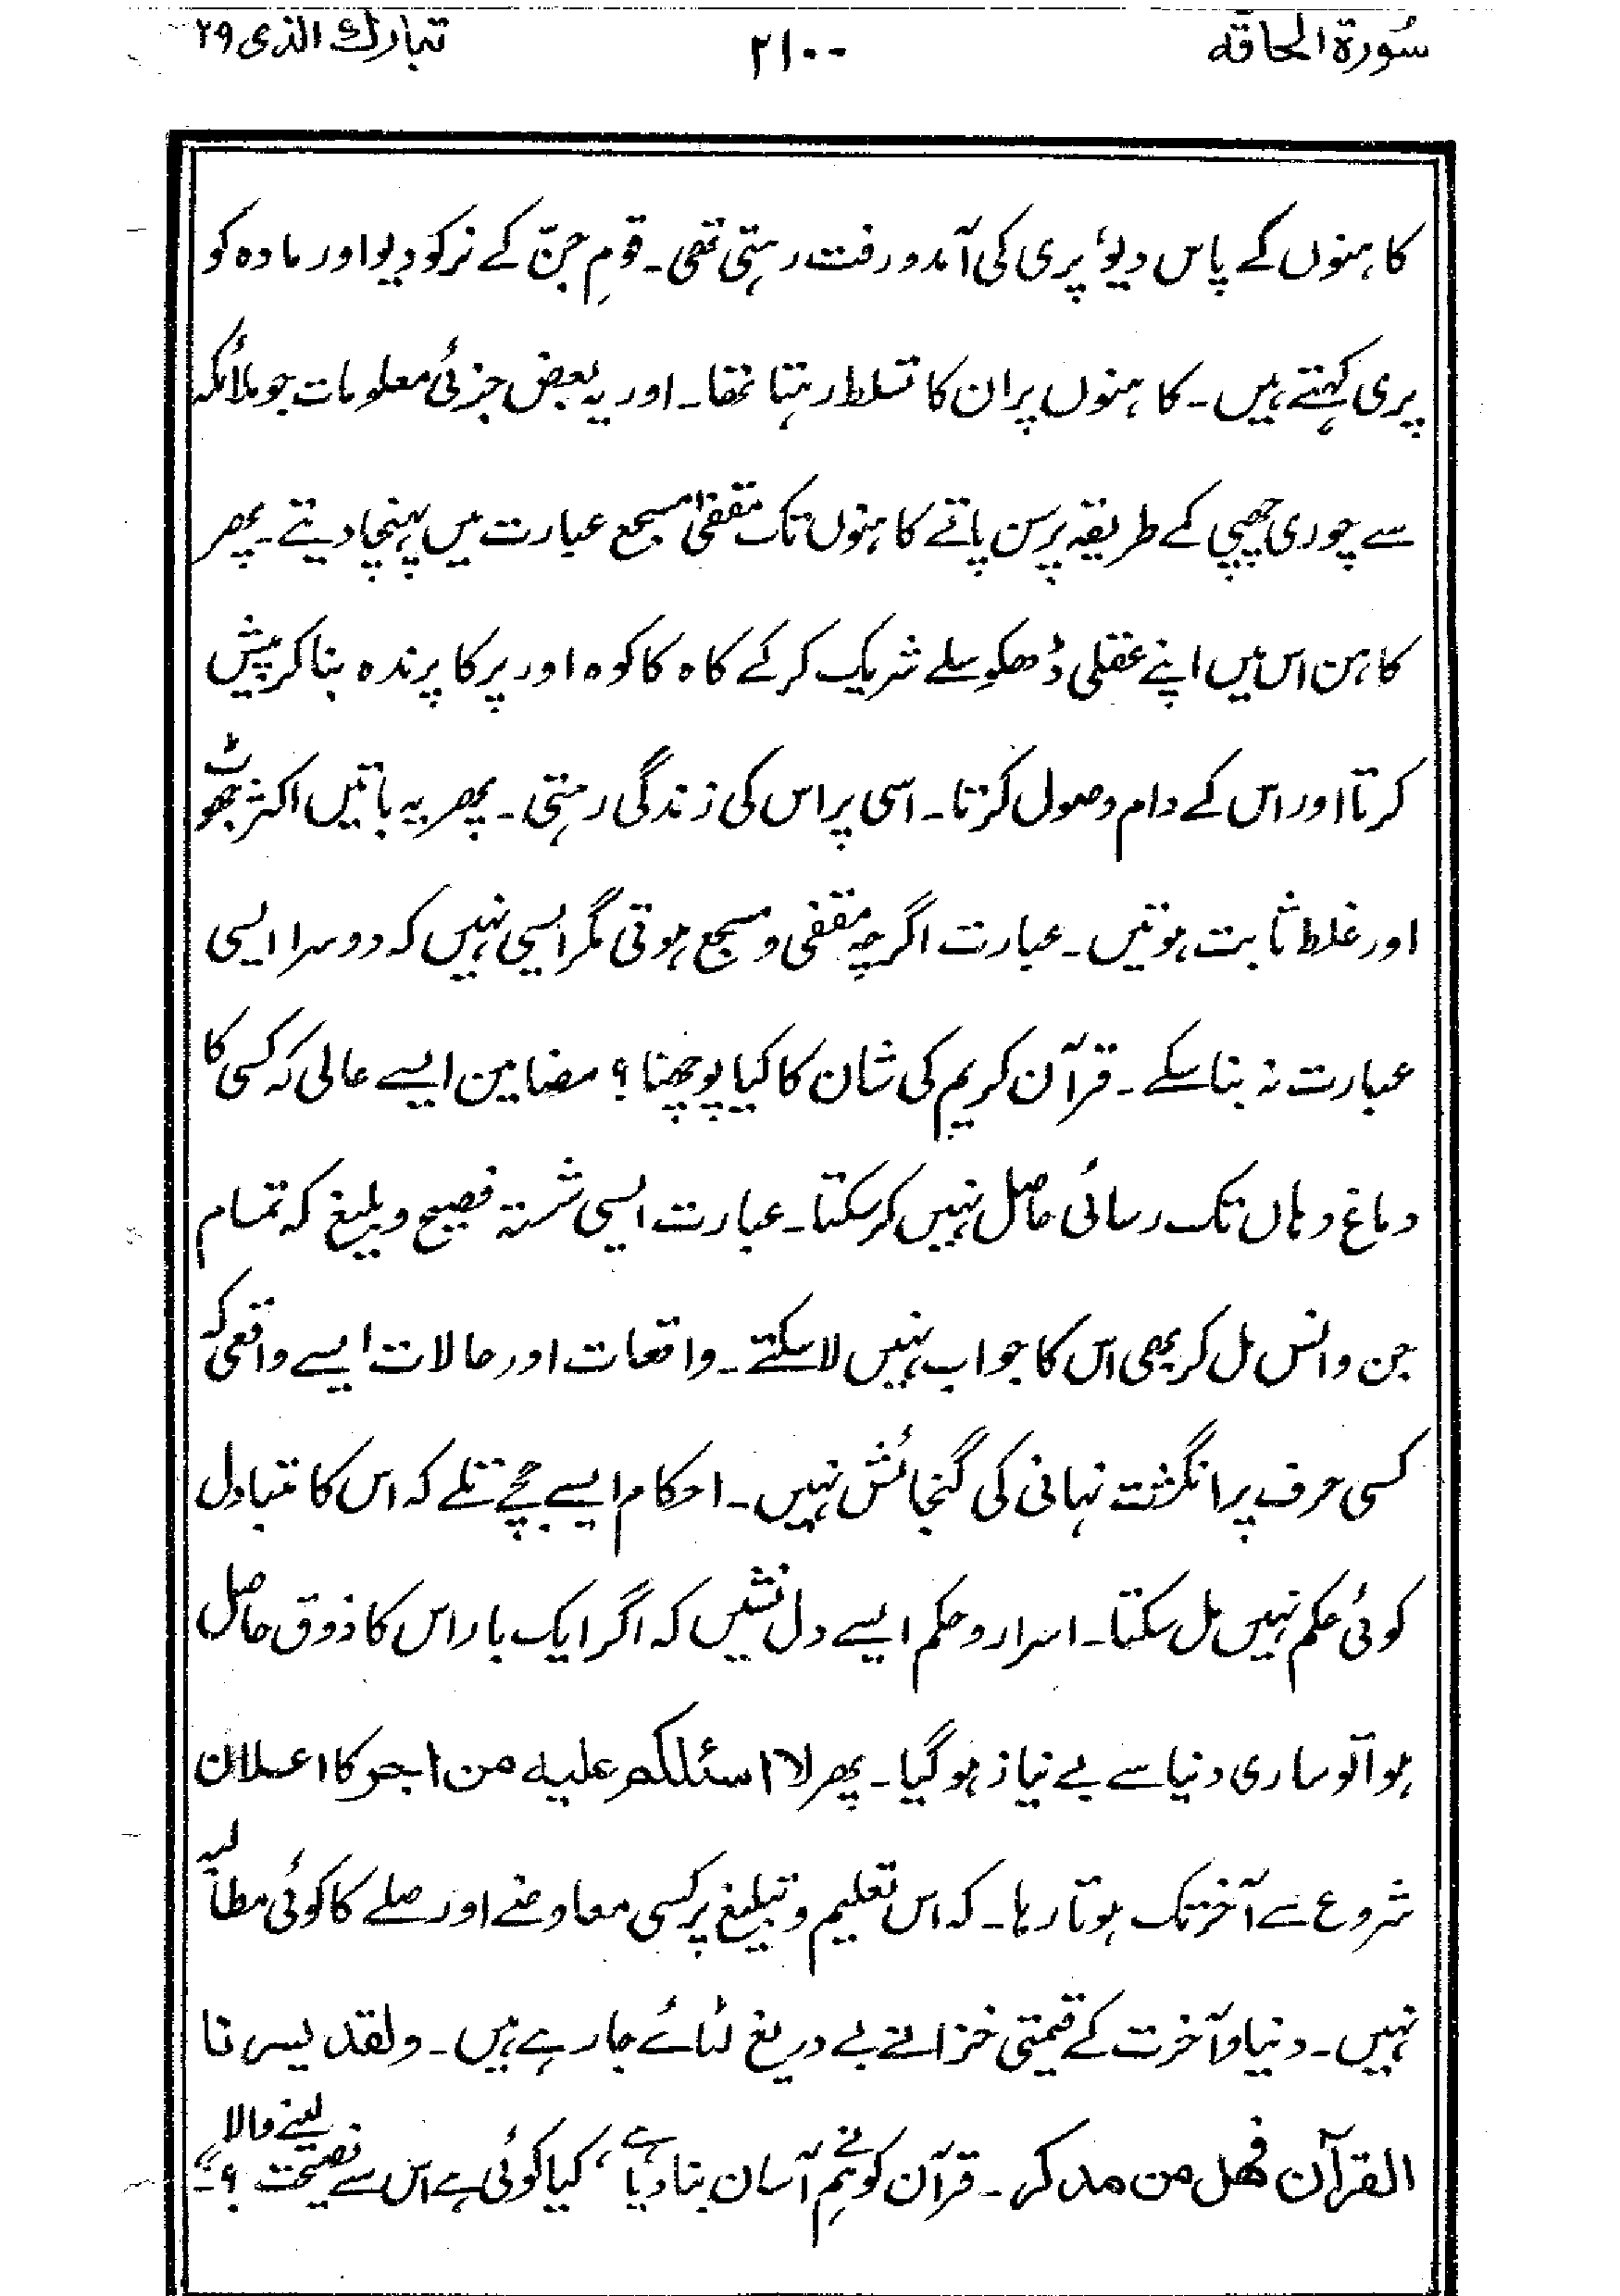 سُورة الحاقه ۲۱۰۰ تبارك الذی ۲۹
کاہنوں کے پاس دیو٬ پری کی آمدورفت رہتی تھی۔ قومِ جنّ کے نر کو دیو اور مادہ کو
پری کہتے ہیں۔ کاہنوں پر ان کا تسلط رہتا تھا۔ اور یہ بعض جزئی معلومات جو ملائکہ
سے چوری چھپی کے طریقہ پر سن پاتے کاہنوں تک مقفیٰ مسجع عبارت میں پہنچا دیتے۔ پھر
کاہن اس میں اپنے عقلی ڈھکوسلے شریک کرکے کاہ کا کوہ اور پر کا پرندہ بنا کر پیش
کرتا اور اس کے دام وصول کرتا۔ اسی پر اس کی زندگی رہتی۔ پھر یہ باتیں اکثر جھوٹ
اور غلط ثابت ہوتیں۔ عبارت اگرچہ مقفی و مسجع ہوتی مگر ایسی نہیں کہ دوسرا ایسی
عبارت نہ بنا سکے۔ قرآن کریم کی شان کا کیا پوچھنا؟ مضامین ایسے عالی کہ کسی کا
دماغ وہاں تک رسائی حاصل نہیں کرسکتا۔ عبارت ایسی شستہ فصیح و بلیغ کہ تمام
جن و انس مل کر بھی اس کا جواب نہیں لاسکتے۔ واقعات اور حالات ایسے واقعی کہ
کسی حرف پر انگشت نہانی کی گنجائش نہیں۔ احکام ایسے جچے تلے کہ اس کا متبادل
کوئی حکم نہیں مل سکتا۔ اسرار و حکم ایسے دل نشیں کہ اگر ایک بار اس کا ذوق حاصل
ہوا تو ساری دنیا سے بے نیاز ہوگیا۔ پھر لا اسئلکم علیه من اجر کا اعلان
شروع سے آخر تک ہوتا رہا۔ کہ اس تعلیم و تبلیغ پر کسی معاوضے اور صلے کا کوئی مطالبہ
نہیں۔ دنیا و آخرت کے قیمتی خزانے بے دریغ لٹائے جارہے ہیں۔ ولقد یسرنا
القرآن فهل من مدکر۔ قرآن کو ہم نے آسان بنا دیا ہے، کیا کوئی ہے اس سے نصیحت لینے والا ؟"۔